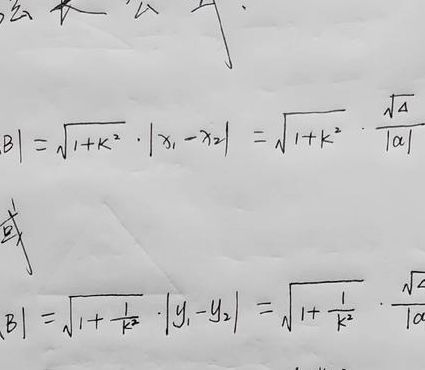 弦长公式.
B| = √(1+k²) · |x₁-x₂| = √(1+k²) · √Δ/|a|
或
B| = √(1+1/k²) · |y₁-y₂| = √(1+1/k²) · √Δ/|a